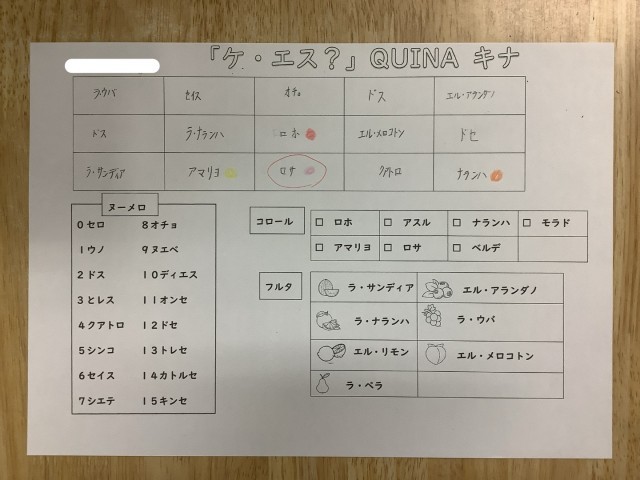 「ケ・エス?」QUINA キナ
ラ・ウバ セイス オチョ ドス エル・アランダノ
ドス ラ・ナランハ ロホ エル・メロコトン ドセ
ラ・サンディア アマリヨ ロサ クアトロ ナランハ
ヌーメロ
0セロ 8オチョ
1ウノ 9ヌエベ
2ドス 10ディエス
3とレス 11オンセ
4クアトロ 12ドセ
5シンコ 13トレセ
6セイス 14カトルセ
7シエテ 15キンセ
コロール
□ ロホ □ アスル □ ナランハ □ モラド
□ アマリヨ □ ロサ □ ベルデ
フルタ
ラ・サンディア エル・アランダノ
ラ・ナランハ ラ・ウバ
エル・リモン エル・メロコトン
ラ・ペラ